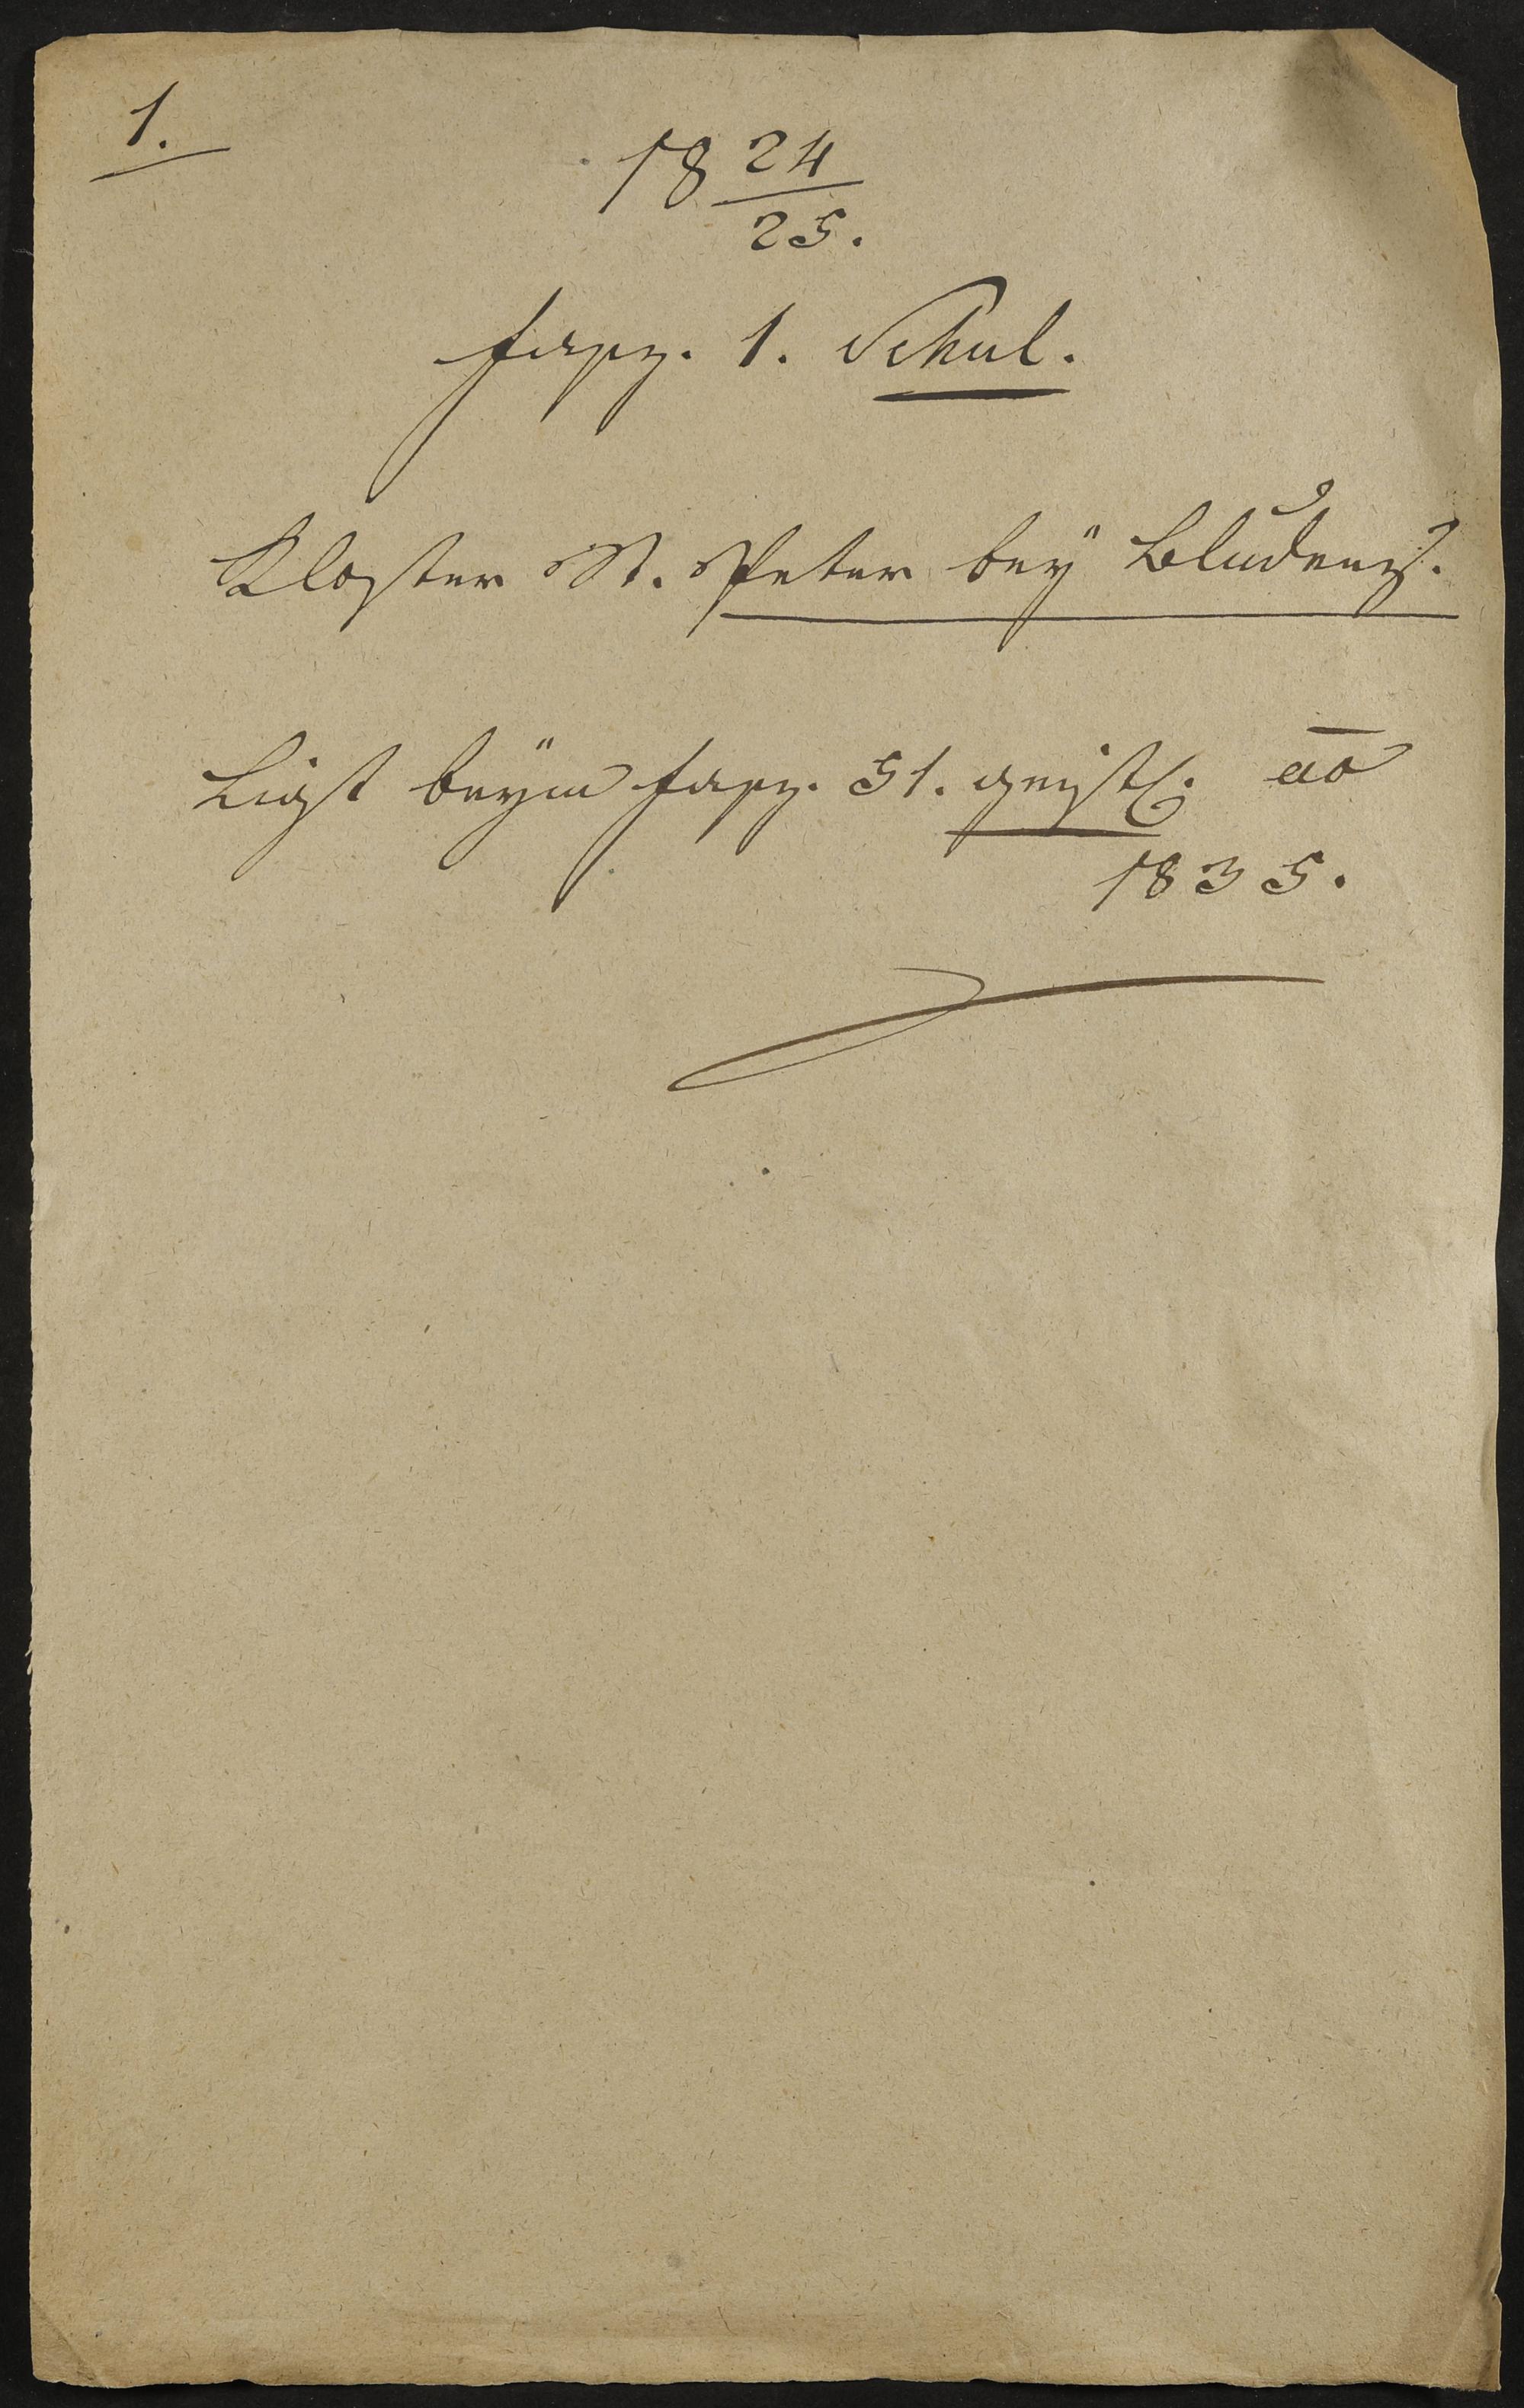 1.
18 24/25.
fasz. 1. Schul.
Kloster St. Peter bey Bludenz.
Ligt beym fasz. 51. geistl. ao
1835.